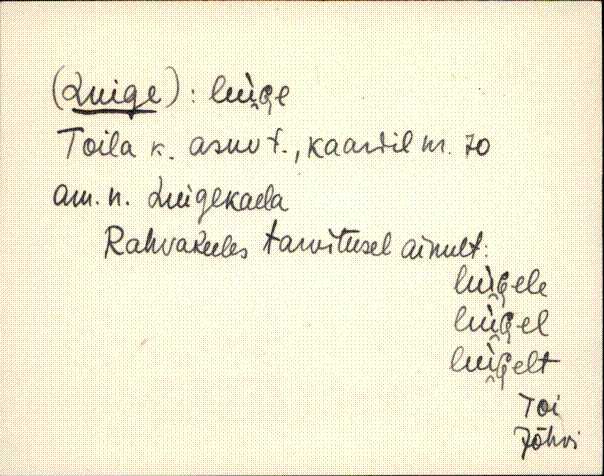 (Luige): luìge
Toila k. asuv t., kaardil nr. 70
am. n. Luigekaela
Rahvakeeles tarvitusel ainult:
luìgele
luìgel
luìgelt
Toi
Jõhvi